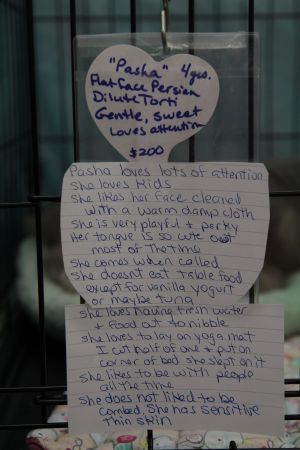 "Pasha" 4yo.
Flat Face Persian
Dilute Torti
Gentle, sweet
Loves attention
$200
Pasha loves lots of attention
She loves Kids
She likes her face cleaned
with a warm damp cloth
She is very playful & perky
Her tongue is so cute out
most of the time
She comes when called
She doesn't eat table food
except for vanilla yogurt
or maybe tuna
She loves having fresh water
& food out to nibble
She loves to lay on yoga mat
I cut half of one & put on
corner of bed she slept on it
She likes to be with people
all the time
She does not liked to be
combed, She has sensitive
thin skin